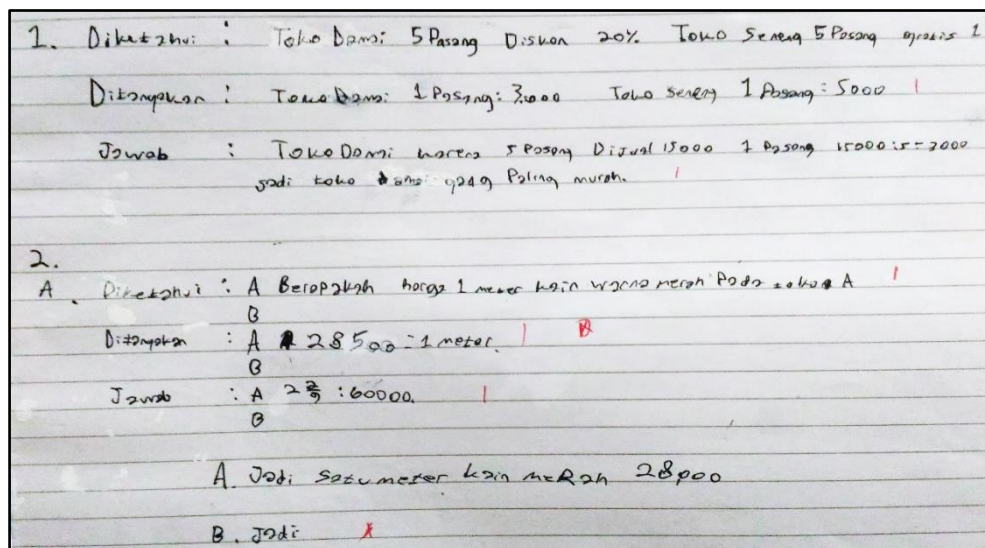 1. Diketahui : Toko Damai 5 Pasang Diskon 20% Toko Seneng 5 Pasang gratis 1
Ditanyakan : Toko Damai 1 Pasang: 3.000 Toko seneng 1 Pasang: 5000
Jawab : Toko Damai karena 5 Pasang Dijual 15000 1 Pasang 15000:5=3000
Jadi toko damai yang Paling murah.
2.
A. Diketahui : A Berapakah harga 1 meter kain warna merah Pada toko A
B
Ditanyakan : A 28500=1 meter.
B
Jawab : A 2 2/9 : 60000.
B
A. Jadi satu meter kain meRah 28000
B. Jadi